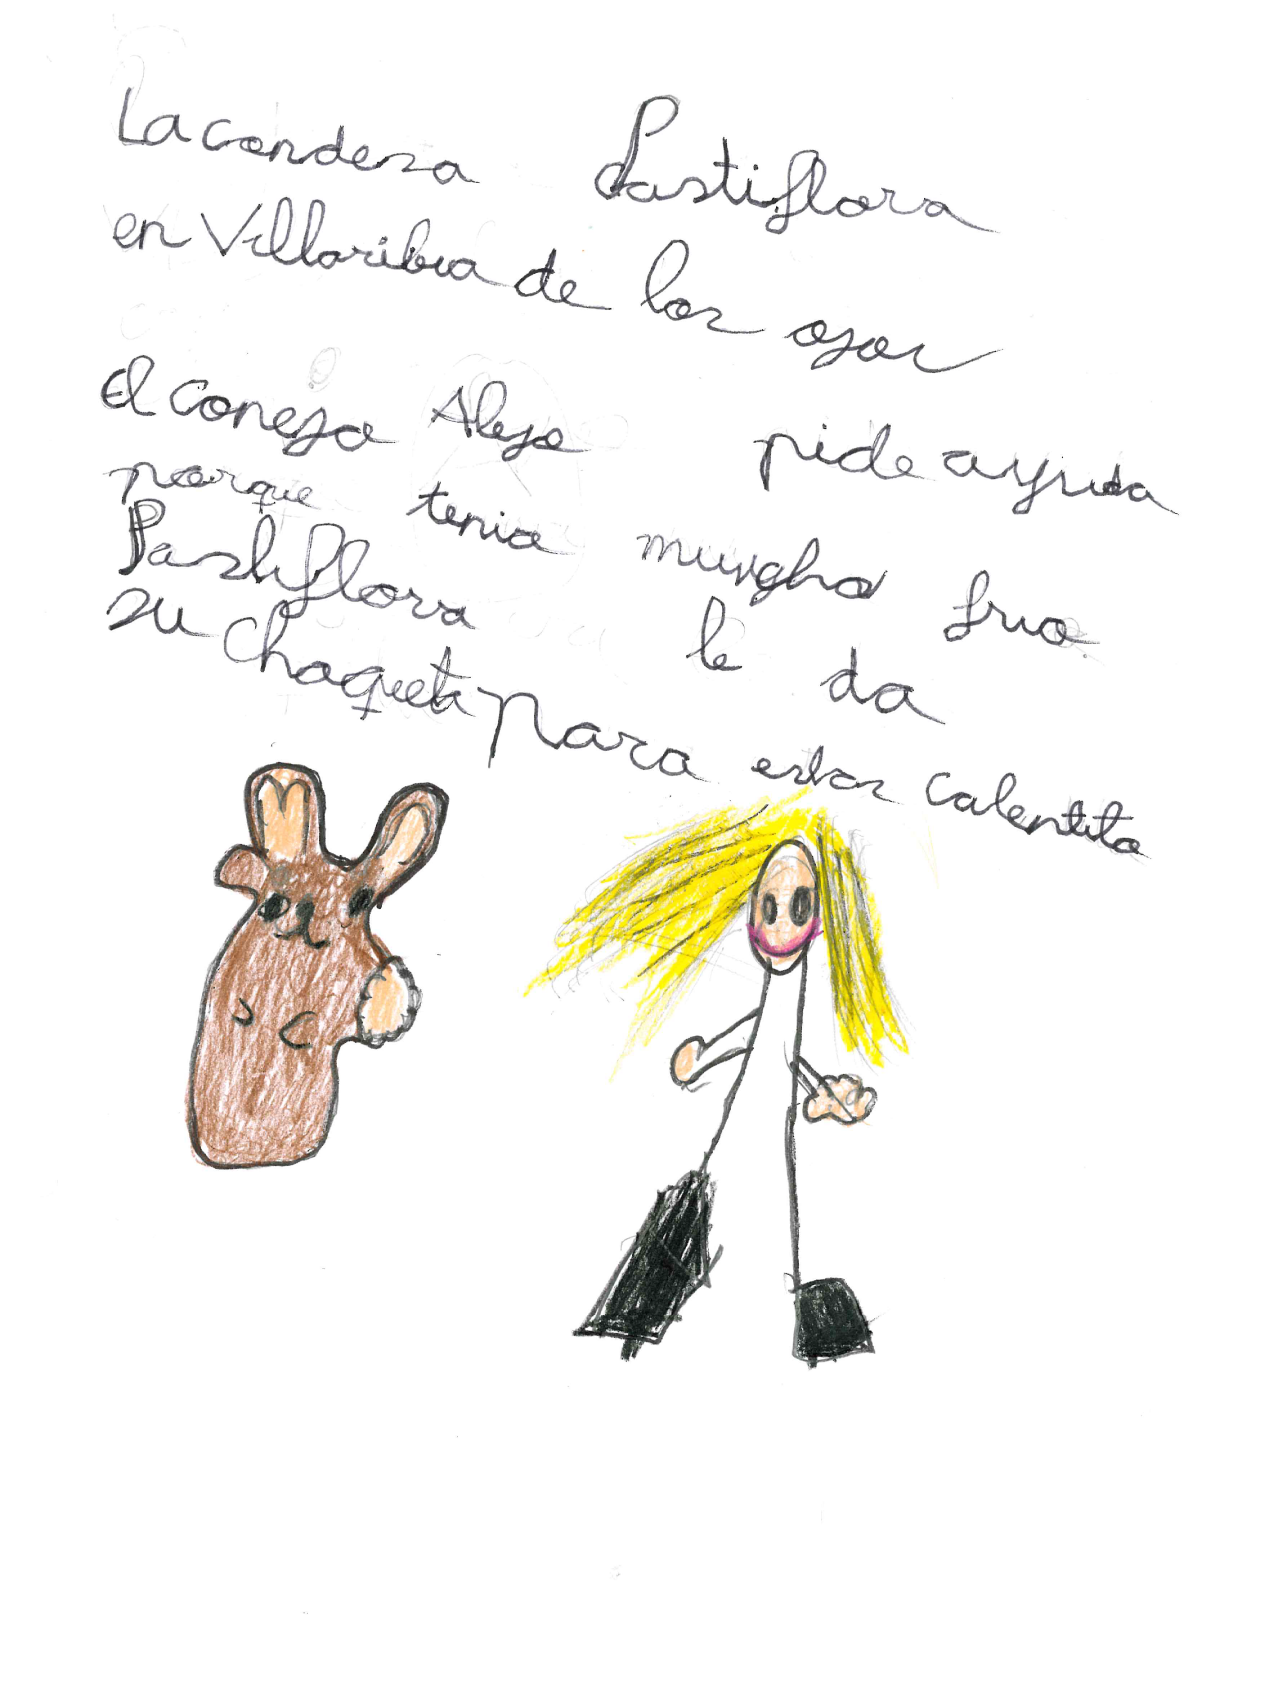 La condesa Pastiflora
en Villaribia de los ojos
el conejo Alejo pide ayuda
porque tenia muncho frio.
Pastiflora le da
su chaqueta para estar calentito